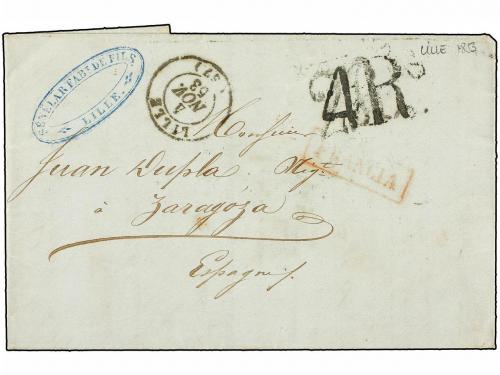 LILLE 1853
FABT. DE FILS
LILLE.
LILLE
4
NOV.
53
(57)
4Rs.
Monsieur
Juan Dupla Negt.
à
Zaragoza
Espagne